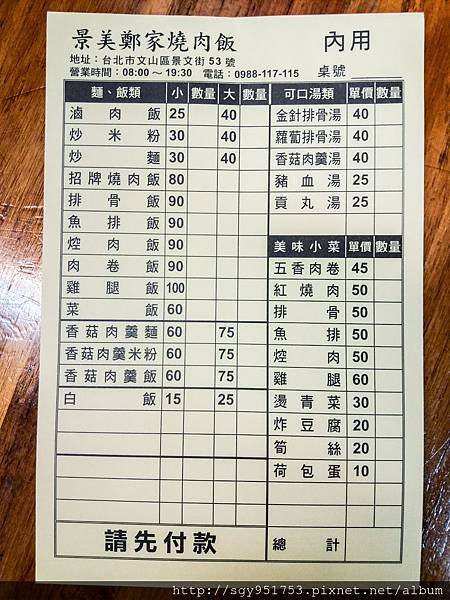 景美鄭家燒肉飯 內用
地址：台北市文山區景文街 53 號
營業時間：08:00 ～ 19:30 電話：0988-117-115 桌號
麵、飯類 小 數量 大 數量
滷肉飯 25 40
炒米粉 30 40
炒麵 30 40
招牌燒肉飯 80
排骨飯 90
魚排飯 90
焢肉飯 90
肉卷飯 90
雞腿飯 100
菜飯 60
香菇肉羹麵 60 75
香菇肉羹米粉 60 75
香菇肉羹飯 60 75
白飯 15 25
請先付款
可口湯類 單價 數量
金針排骨湯 40
蘿蔔排骨湯 40
香菇肉羹湯 40
豬血湯 25
貢丸湯 25
美味小菜 單價 數量
五香肉卷 45
紅燒肉 50
排骨 50
魚排 50
焢肉 50
雞腿 60
燙青菜 30
炸豆腐 20
筍絲 20
荷包蛋 10
總計
http://sgy951753.pixnet.net/album